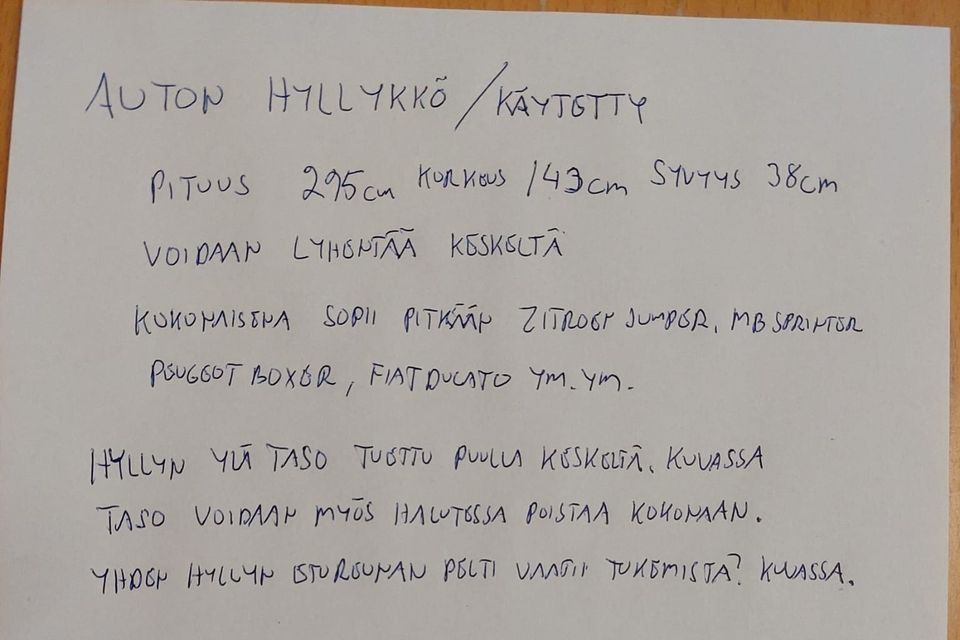 AUTON HYLLYKKÖ / KÄYTETTY
PITUUS 295cm KORKEUS 143cm SYVYYS 38cm
VOIDAAN LYHENTÄÄ KESKELTÄ
KOKONAISENA SOPII PITKÄÄN ZITROEN JUMPER, MB SPRINTER
PEUGEOT BOXER, FIAT DUCATO YM. YM.
HYLLYN YLÄ TASO TUETTU PUULLA KESKELTÄ. KUVASSA
TASO VOIDAAN MYÖS HALUTESSA POISTAA KOKONAAN.
YHDEN HYLLYN ETUREUNAN PELTI VAATII TUKEMISTA? KUVASSA.